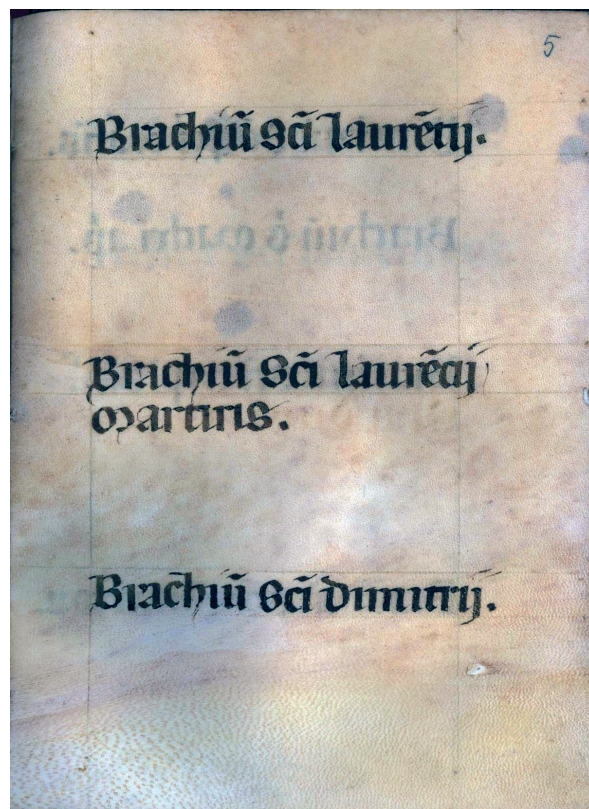 5
Brachiũ Sci̅ laurẽtij.
Brachiũ Sci̅ laurẽcij
Martiris.
Brachiũ Sci̅ Dimitrij.